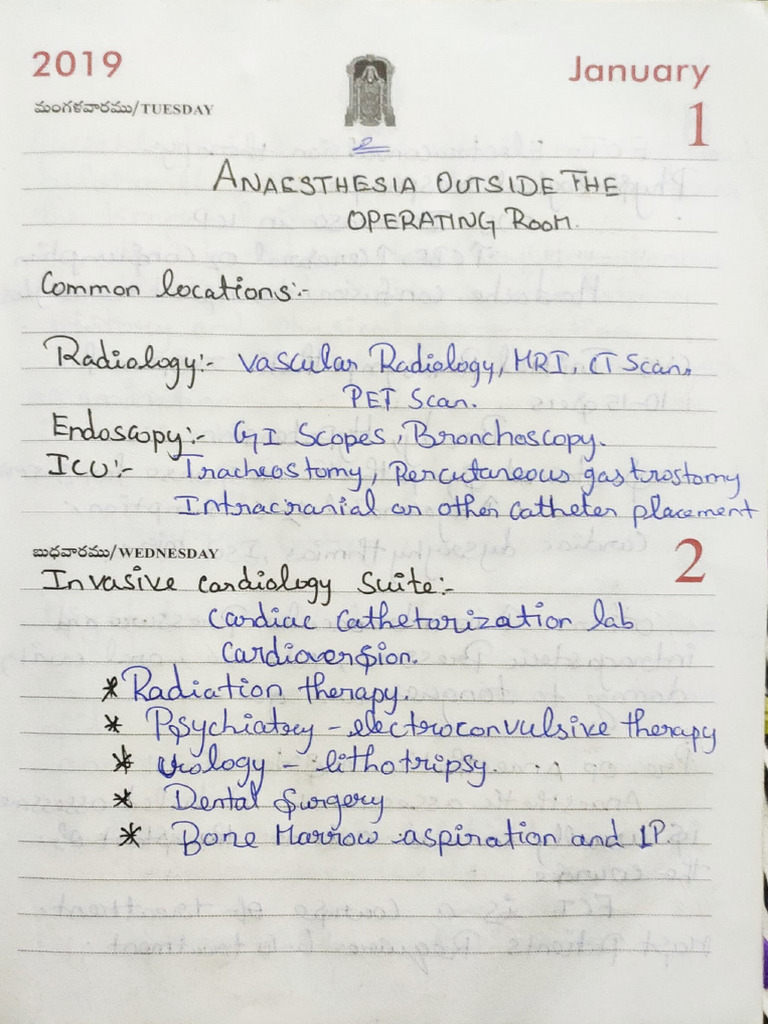 2019
January
మంగళవారము/TUESDAY
1
ANAESTHESIA OUTSIDE THE
OPERATING ROOM.
Common locations:-
Radiology:- Vascular Radiology, MRI, CT Scan,
PET Scan.
Endoscopy:- GI Scopes, Bronchoscopy.
ICU:- Tracheostomy, Percutaneous gastrostomy
Intracranial or other catheter placement
బుధవారము/WEDNESDAY
2
Invasive cardiology Suite:-
Cardiac Catheterization lab
Cardioversion.
* Radiation therapy.
* Psychiatry - electroconvulsive therapy
* Urology - lithotripsy.
* Dental Surgery
* Bone Marrow aspiration and LP.